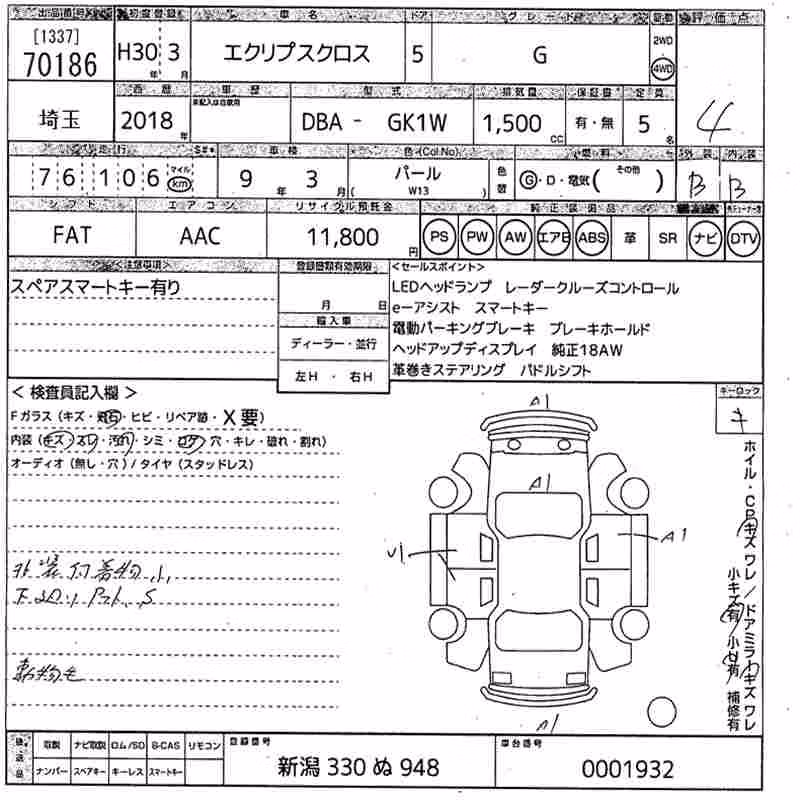 出品番号 初度登録 車名 ドア グレード 駆動 評価点
[1337]
70186 H30年 3月 エクリプスクロス 5 G 2WD 4WD
西暦 車歴 型式 排気量 保証書 定員
埼玉 2018年 DBA - GK1W 1,500cc 有・無 5名 4
走行 車検 色(Col.No) 燃料 外装 内装
76106 マイル km 9年 3月 パール (W13) 色替 G・D・電気( その他 ) B B
シフト エアコン リサイクル預託金 純正装備品
FAT AAC 11,800円 PS PW AW エアB ABS 革 SR ナビ DTV
<注意事項> 登録書類有効期限 <セールスポイント>
スペアスマートキー有り
月 日
輸入車
ディーラー・並行
左H ・ 右H
LEDヘッドランプ レーダークルーズコントロール
e-アシスト スマートキー
電動パーキングブレーキ ブレーキホールド
ヘッドアップディスプレイ 純正18AW
革巻きステアリング パドルシフト
< 検査員記入欄 >
Fガラス(キズ・飛石・ヒビ・リペア跡・X要)
内装(キズ・スレ・汚れ・シミ・コゲ・穴・キレ・破れ・割れ)
オーディオ(無し・穴)/タイヤ(スタッドレス)
キーロック
キ
A1
A1
U1
A1
A1
ホイル・CPキズワレ/ドアミラーキズワレ
小キズ有 小U有 補修有
外装付着物小
動物毛
後送品 取説 ナビ取説 ロム/SD B-CAS リモコン
ナンバー スペアキー キーレス スマートキー
登録番号
新潟 330 ぬ 948
車台番号
0001932